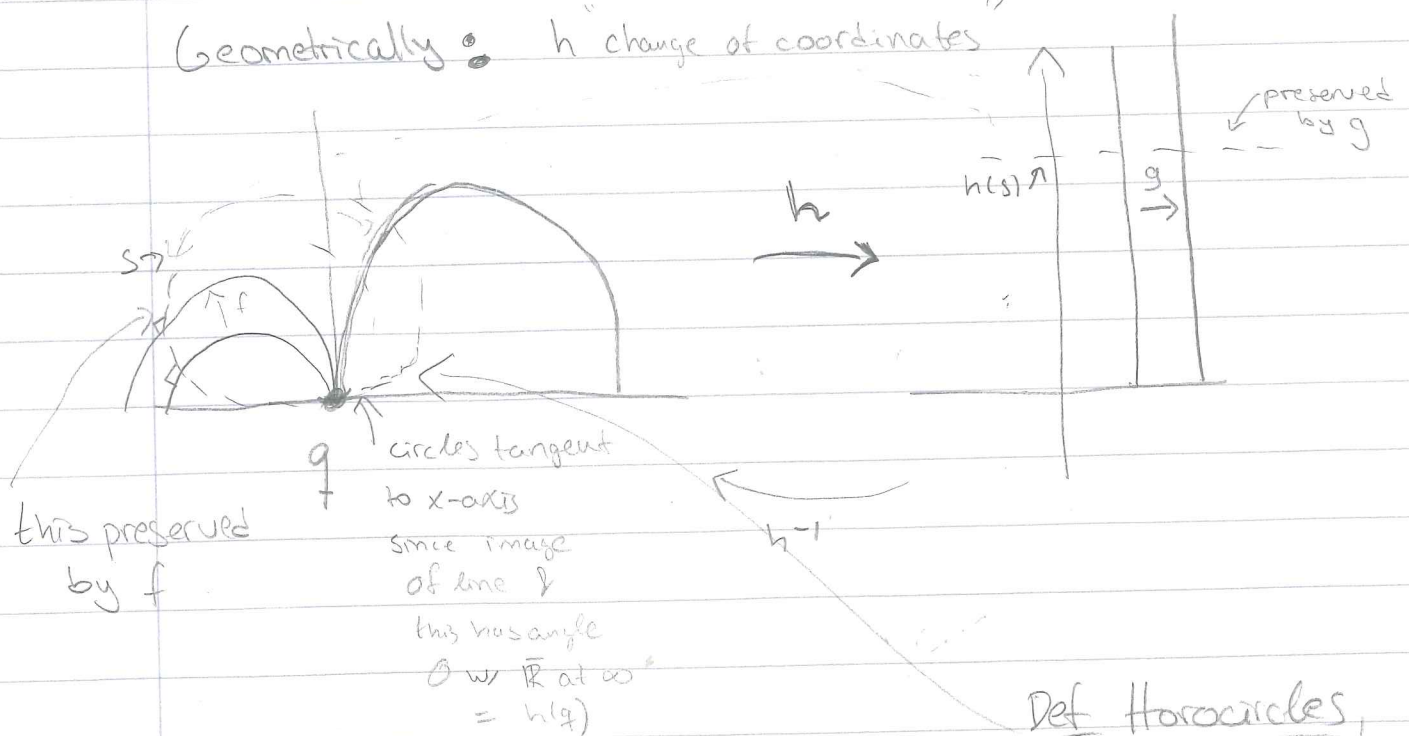 Geometrically: h "change of coordinates"
preserved
by g
h(s)
g
h
s
f
q
circles tangent
to x-axis
since image
of line &
this has angle
0 w/ R̄ at ∞
= h(q)
this preserved
by f
h⁻¹
Def Horocircles,